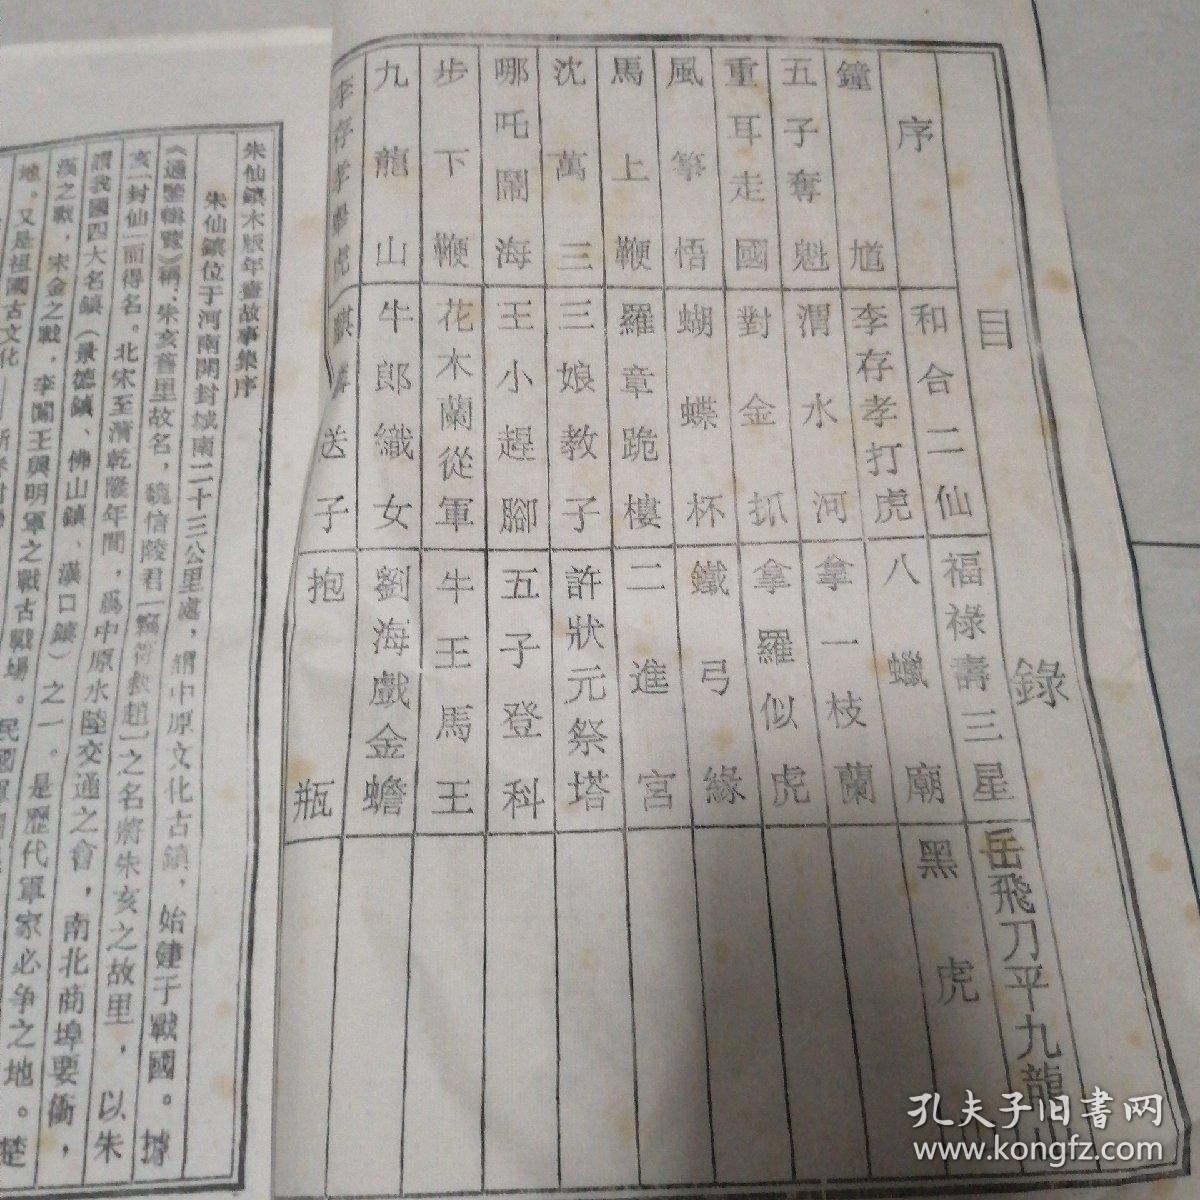 目錄
序
鐘馗
五子奪魁
重耳走國
風箏悟
馬上鞭
沈萬三
哪吒鬧海
步下鞭
九龍山
李存孝
和合二仙
李存孝打虎
渭水河
對金抓
蝴蝶杯
羅章跪樓
三娘教子
王小趕腳
花木蘭從軍
牛郎織女
麒麟送子
福祿壽三星
八蠟廟
拿一枝蘭
拿羅似虎
鐵弓緣
二進宮
許狀元祭塔
五子登科
牛王馬王
劉海戲金蟾
抱瓶
岳飛刀平九龍山
黑虎
朱仙鎮木版年畫故事集序
朱仙鎮位于河南開封城南二十三公里處，謂中原文化古鎮，始建于戰國。據
《通鑒輯覽》稱：朱亥舊里故名，魏信陵君「竊符救趙」之名將朱亥之故里，以朱
亥「封仙」而得名。北宋至清乾隆年間，爲中原水陸交通之會，南北商埠要衝，
謂我國四大名鎮（景德鎮、佛山鎮、漢口鎮）之一。是歷代軍家必爭之地。楚
漢之戰，宋金之戰，李闖王與明軍之戰古戰場。民國軍閥
地。又是祖國古文化
孔夫子旧书网
www.kongfz.com